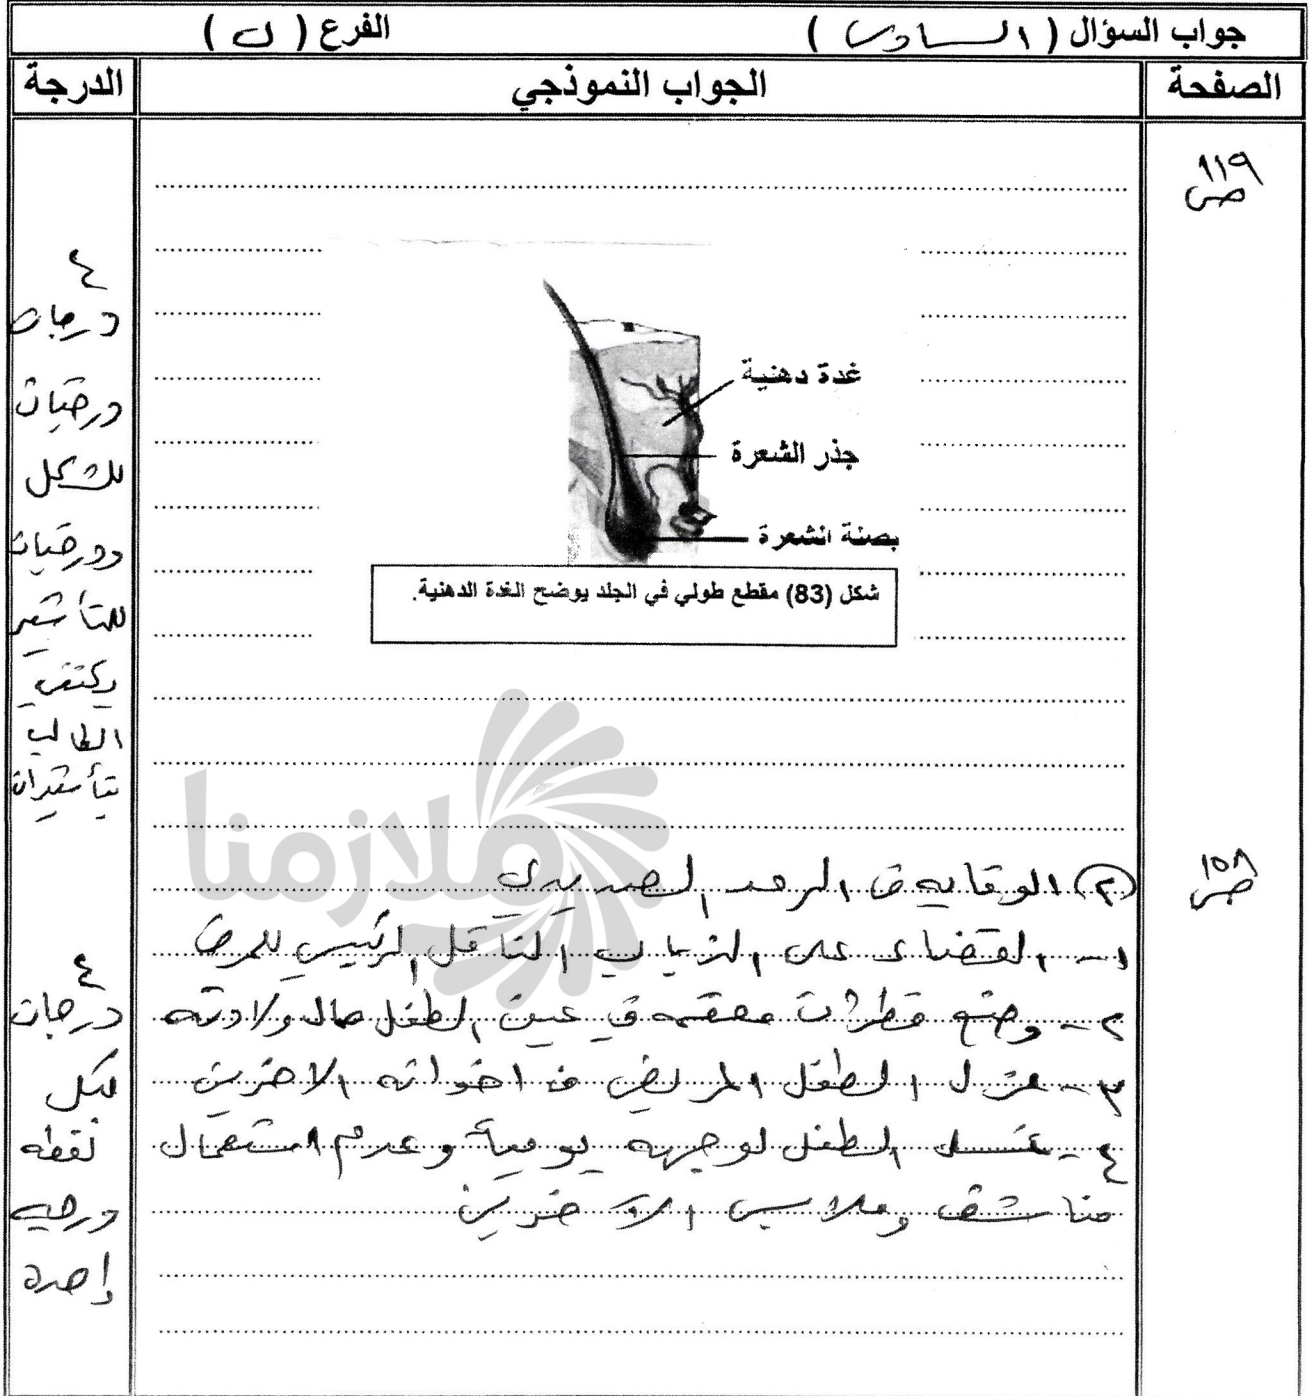 جواب السؤال ( السادس ) الفرع ( ب )
الصفحة الجواب النموذجي الدرجة
ص ١١٩
غدة دهنية
جذر الشعرة
بصلة الشعرة
شكل (83) مقطع طولي في الجلد يوضح الغدة الدهنية.
٤
درجات
درجتان
للشكل
ودرجتان
للتأشير
يكتفي
الطالب
بتأشيران
ملازمنا
ص ١٥٨
(٢) الوقاية من الرمد الصديدي
١- القضاء على الذباب الناقل الرئيسي للمرض
٢- وضع قطرات معقمه في عين الطفل حال ولادته
٣- عزل الطفل المريض من اخواته الاخرين
٤- غسل الطفل لوجهه يومياً وعدم استعمال
مناشف وملابس الاخرين
٤
درجات
لكل
نقطه
درجه